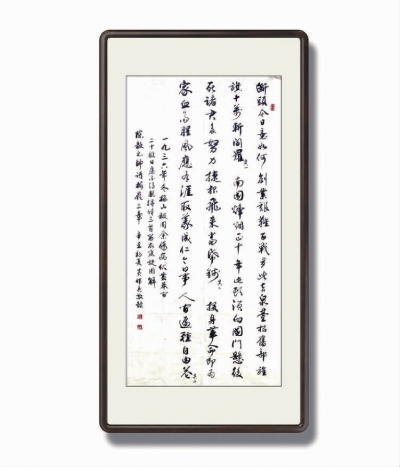 断头今日意如何 創業艱難百战多 此去泉臺招舊部 旌
旗十萬斬閻羅 其一 南國烽烟正十年 此頭须向國門懸 後
死諸君多努力 捷报飛来當纸錢 其二 投身革命即為
家 血雨腥風應有涯 取義成仁今日事 人间遍種自由花 其三
一九三六年冬梅山被围余傷病伏叢莽间
二十餘日慮不得脱得詩三首留衣底旋围解
陳毅元帅詩梅嶺三章 辛丑初夏 敬録